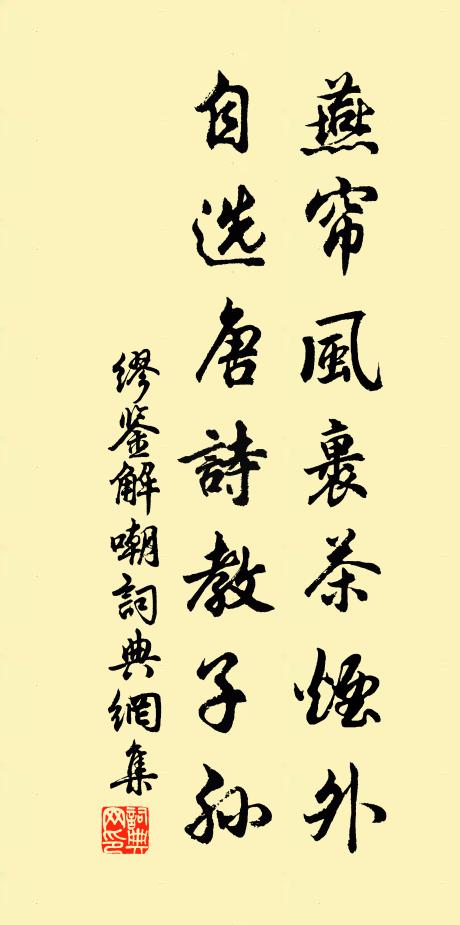 燕帘風裏茶煙外
自选唐詩教子孙
繆鉴解嘲詞典網集
詞典网印